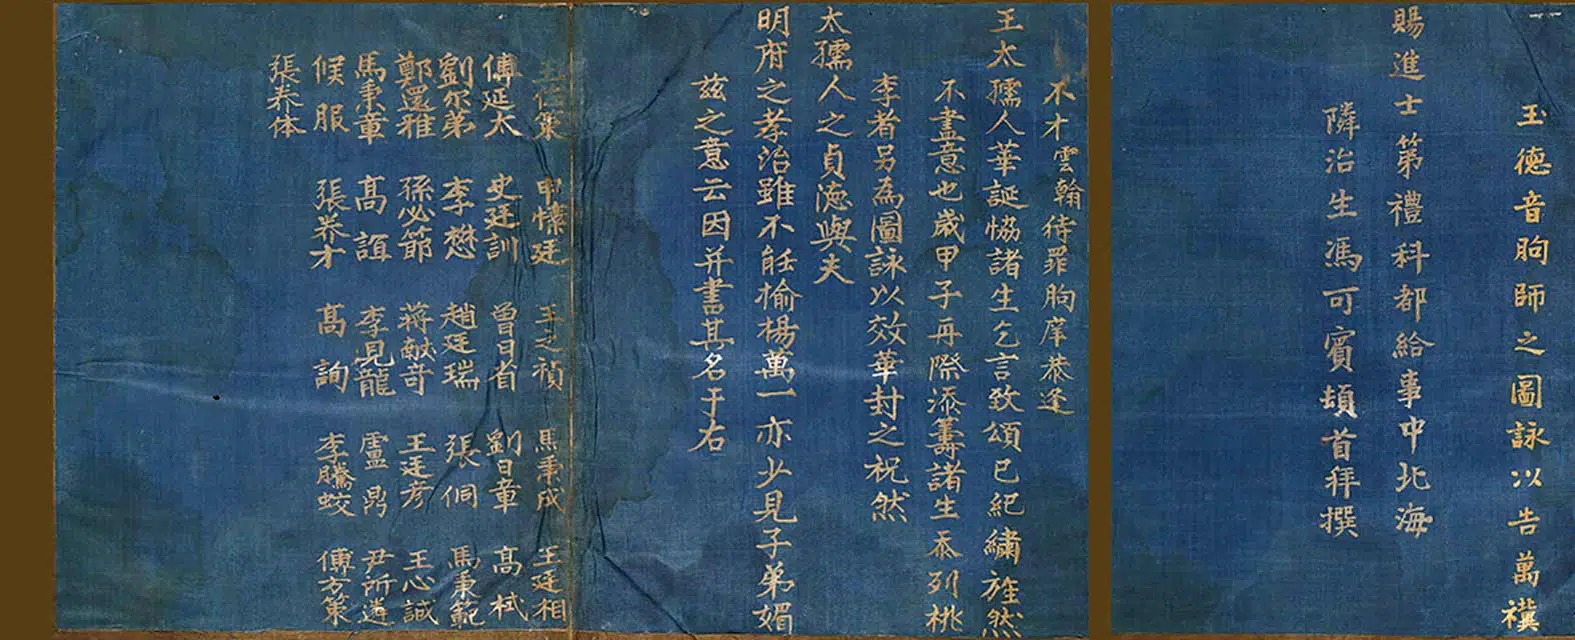 玉德音朐師之圖詠以告萬禩
賜進士第禮科都給事中北海
隣治生馮可賓頓首拜撰
不才雲翰待罪朐庠恭逢
王太孺人華誕恊諸生乞言致頌已紀繡旌然
不盡意也歲甲子再際添籌諸生忝列桃
李者另為圖詠以效華封之祝然
太孺人之貞德與夫
明府之孝治雖不能揄揚萬一亦少見子弟媚
茲之意云因并書其名于右
申愫廷 王之禎 馬秉成 王廷相
傅延太 史廷訓 曾日省 劉日章 高栻
劉尔弟 李懋 趙廷瑞 張侗 馬秉範
鄭還雅 孫必節 蔣猷奇 王廷彥 王心誠
馬秉章 高誼 李見龍 盧鼎 尹所遴
候服 張养才 高詢 李騰蛟 傅方策
張养体